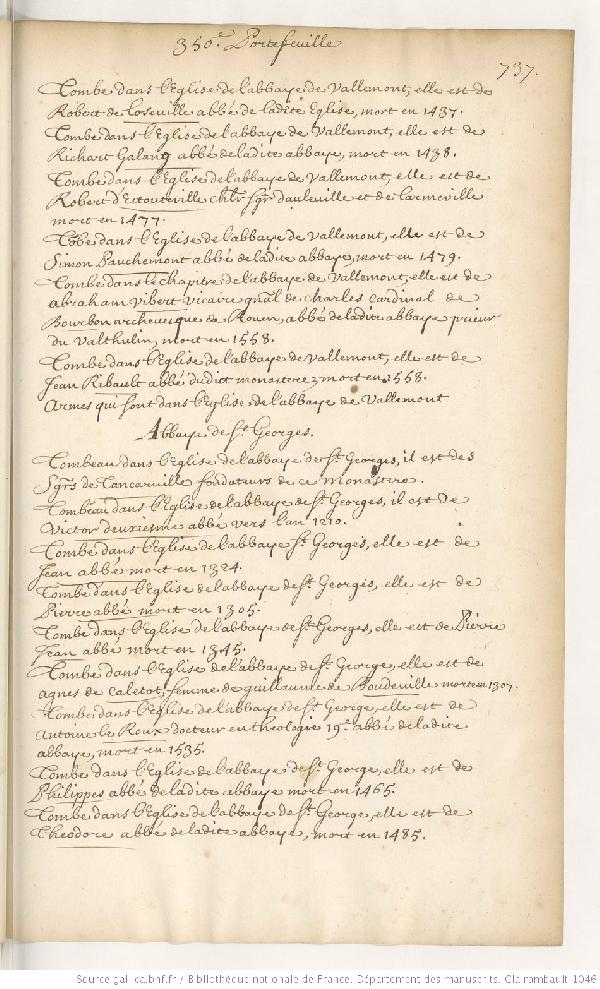 350.e Portefeuille
737.
Tombe dans l'Eglise de l'abbaye de Vallemont, elle est de
Robert de loreuille abbé de ladite Eglise, mort en 1437.
Tombe dans l'Eglise de l'abbaye de Vallemont, elle est de
Richart Galang abbé de ladite abbaye, mort en 1438.
Tombe dans l'Eglise de l'abbaye de Vallemont, elle est de
Robert d'Estouteville chlr sgr d'auleuille et de
mort en 1477.
Tõbe dans l'Eglise de l'abbaye de Vallemont, elle est de
Simon Pauchemont abbé de ladite abbaye, mort en 1479.
Tombe dans le chapitre de l'abbaye de Vallemont, elle est de
abraham vibert vicaire gnãl de charles cardinal de
Bourbon archeuesque de Rouen, abbé de ladite abbaye prieur
du Valthulin, mort en 1558.
Tombe dans l'Eglise de l'abbaye de Vallemont, elle est de
Jean Ribault abbé dudict monastere, mort en 1558.
Armes qui sont dans l'Eglise de l'abbaye de Vallemont
Abbaye de St. Georges.
Tombeau dans l'Eglise de l'abbaye de St. Georges, il est des
Sgrs de Tancaruille fondateurs de ce monastere.
Tombeau dans l'Eglise de l'abbaye de St. Georges, il est de
Victor deuxiesme abbé vers l'an 1210.
Tombe dans l'Eglise de l'abbaye St. Georges, elle est de
Jean abbé mort en 1324.
Tombe dans l'Eglise de l'abbaye de St. Georges, elle est de
Pierre abbé mort en 1305.
Tombe dans l'Eglise de l'abbaye de St. Georges, elle est de Pierre
Jean abbé mort en 1345.
Tombe dans l'Eglise de l'abbaye de St. George, elle est de
agnes de caletot, femme de guillaume de Boudeuille morte en 1307.
Tombe dans l'Eglise de l'abbaye de St. George, elle est de
Antoine le Roux docteur en theologie 19.e abbé de ladite
abbaye, mort en 1535.
Tombe dans l'Eglise de l'abbaye de St. George, elle est de
Philippes abbé de ladite abbaye mort en 1465.
Tombe dans l'Eglise de l'abbaye de St. George, elle est de
Theodore abbé de ladite abbaye, mort en 1485.
Source gallica.bnf.fr / Bibliothèque nationale de France. Département des manuscrits. Clairambault 1046